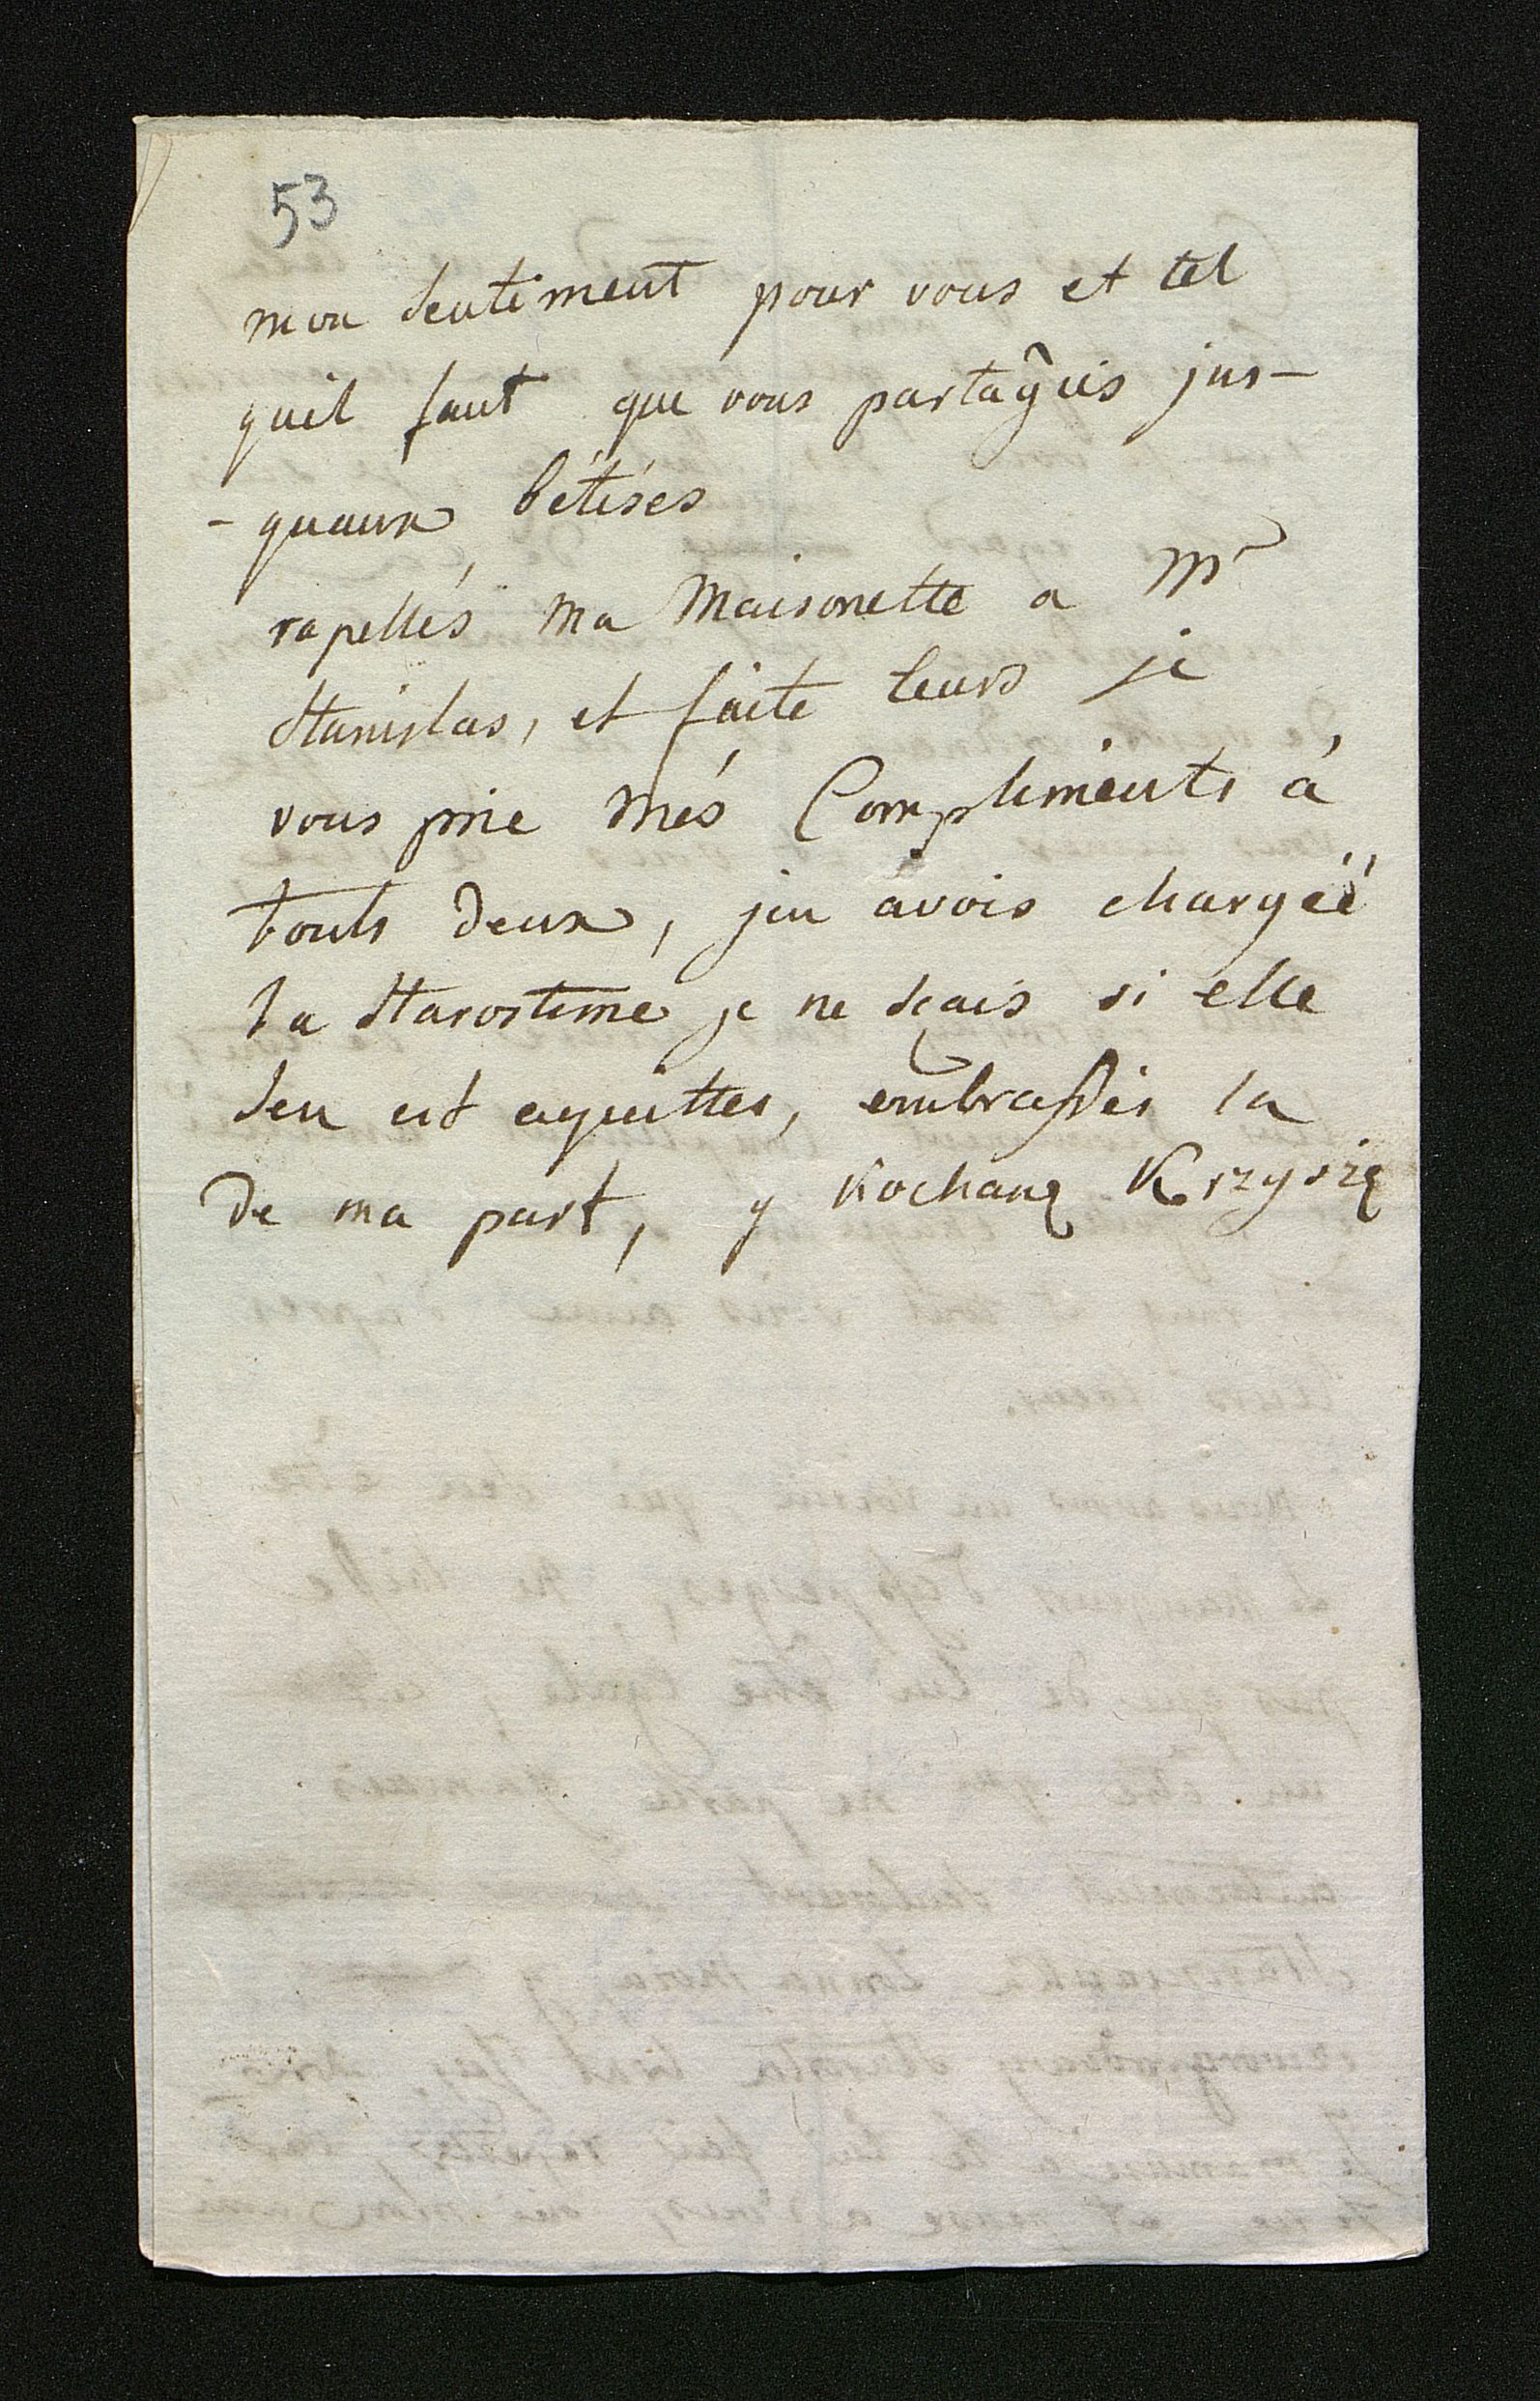 53
mon sentiment pour vous et tel
quil faut que vous partagiés jus-
-quaux bétises
rapellés ma Maisonette a Mr
Stanislas, et faite leurs je
vous prie més Compliments á
touts deux, jen avois chargéé
la Starostine je ne sçais si elle
sen est aquittes, embrassés la
de ma part, y kochaną Krzysię